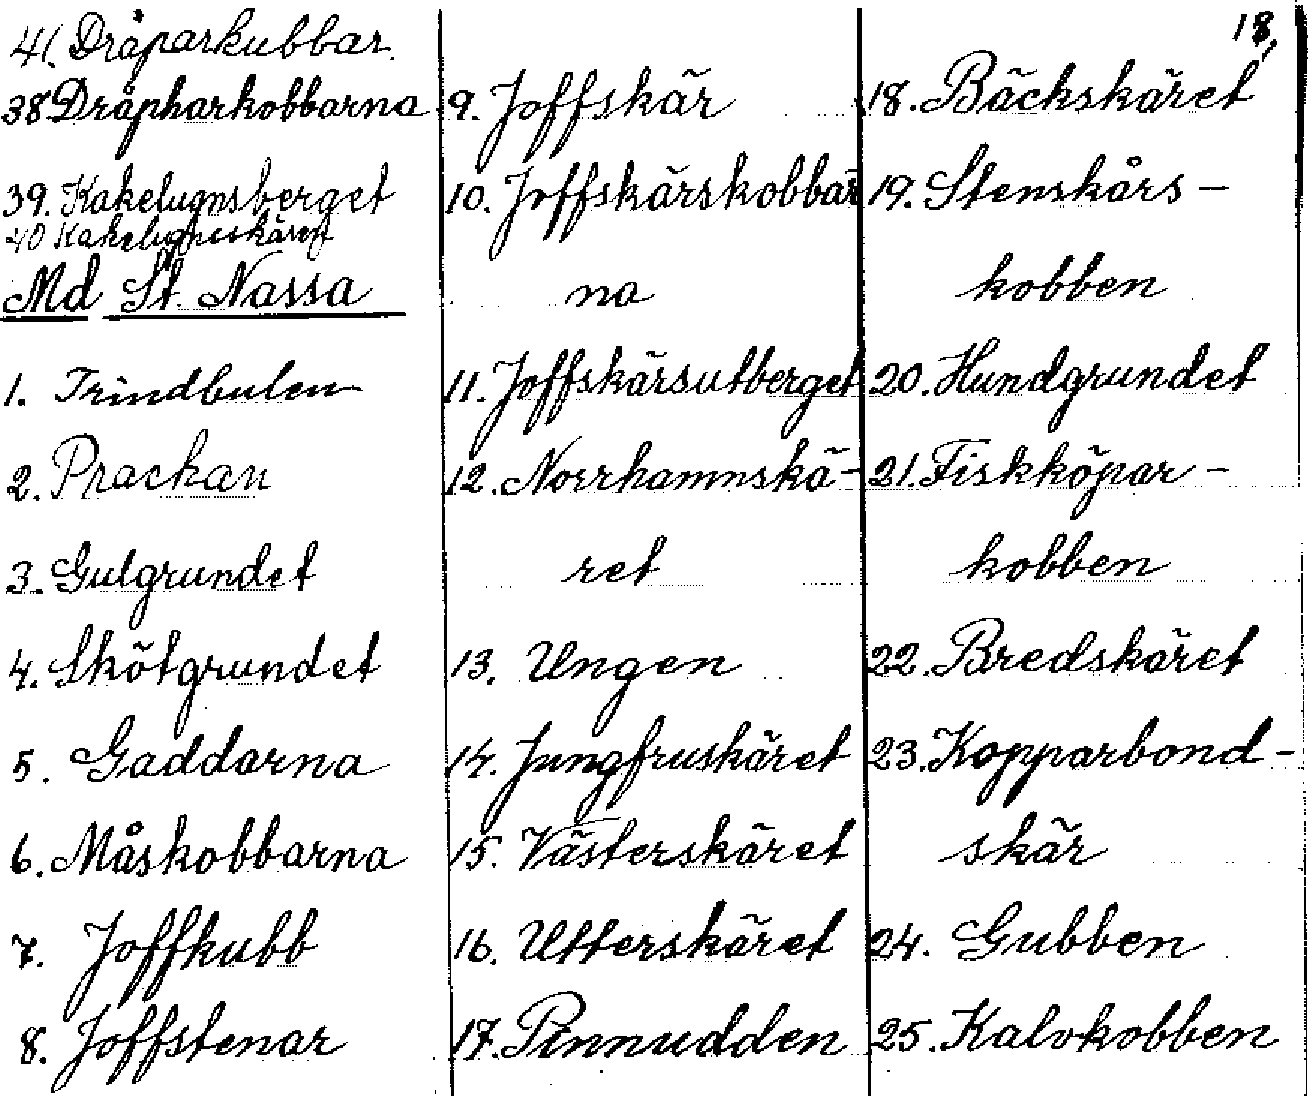 18,
41. Dråparkubbar.
38 Dråpharkobbarna
39. Kakelugnsberget
40 Kakelugnsskäret
Md St. Nassa
1. Trindbulen
2. Prackan
3. Gulgrundet
4. Skötgrundet
5. Gaddarna
6. Måskobbarna
7. Joffkubb
8. Joffstenar
9. Joffskär
10. Joffskärskobbar
na
11. Joffskärsutberget
12. Norrhamnskä-
ret
13. Ungen
14. Jungfruskäret
15. Västerskäret
16. Utterskäret
17. Pinnudden
18. Bäckskäret
19. Stenskårs-
kobben
20. Hundgrundet
21. Fiskköpar-
kobben
22. Bredskäret
23. Kopparbond-
skär
24. Gubben
25. Kalvkobben